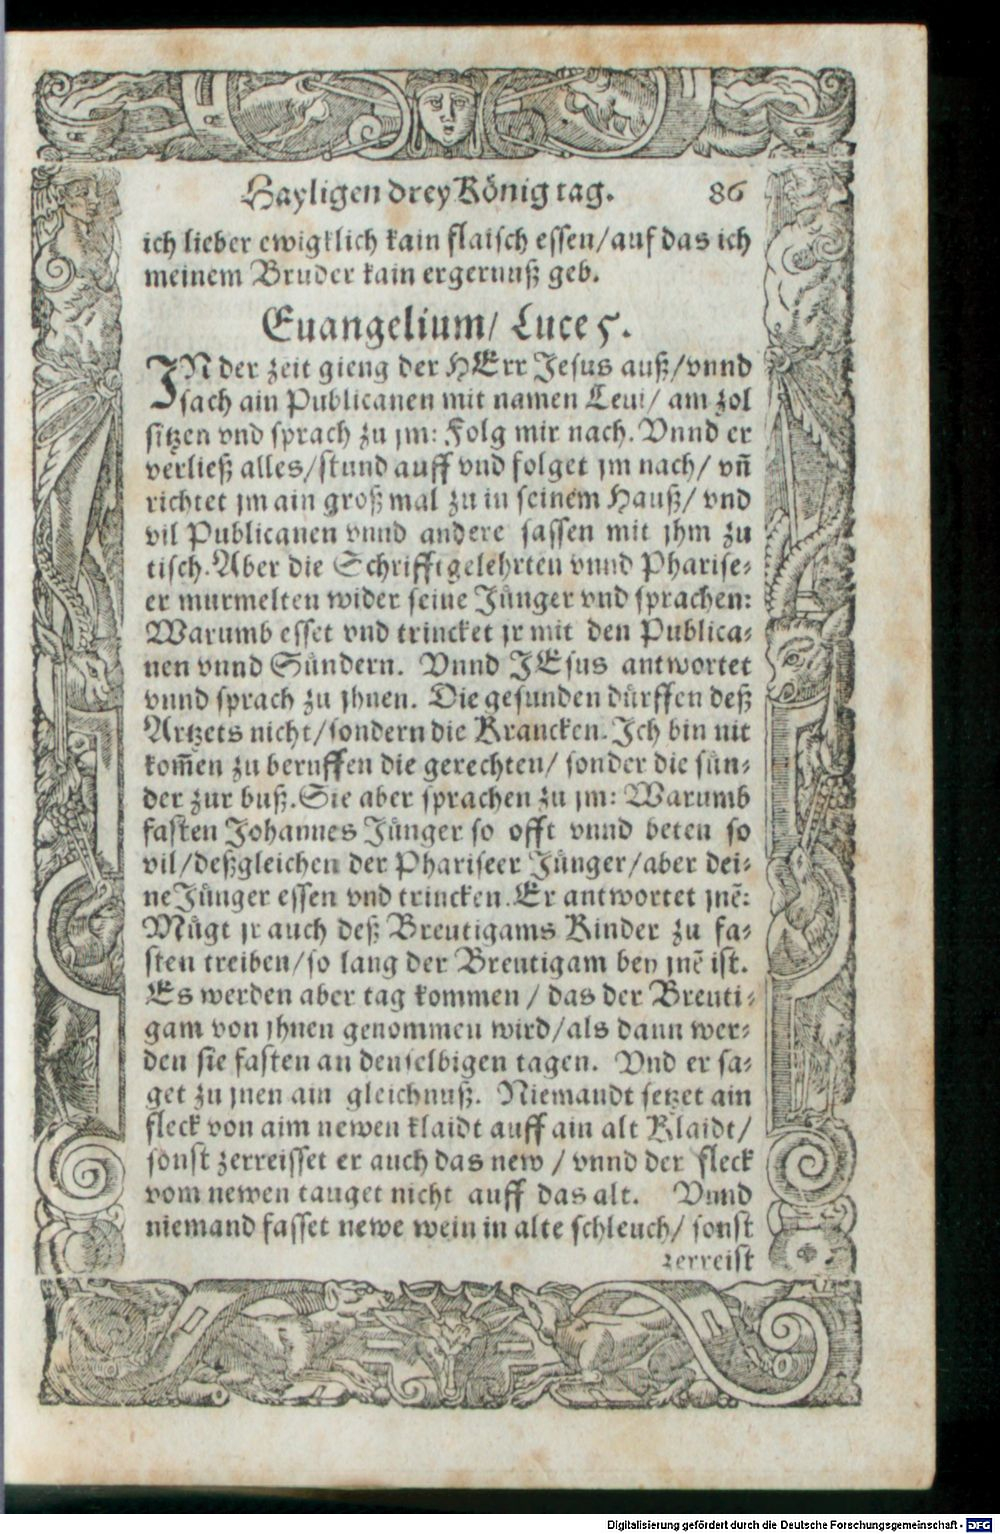 Hayligen drey König tag. 86
ich lieber ewigklich kain flaisch essen/auf das ich
meinem Bruder kain ergernuß geb.
Euangelium/ Luce 5.
IN der zeit gieng der HErr Jesus auß/vnnd
sach ain Publicanen mit namen Leui/ am zol
sitzen vnd sprach zu jm: Folg mir nach. Vnnd er
verließ alles/stund auff vnd folget jm nach/ vñ
richtet jm ain groß mal zu in seinem Hauß/ vnd
vil Publicanen vnnd andere sassen mit jhm zu
tisch. Aber die Schrifftgelehrten vnnd Pharise-
er murmelten wider seine Jünger vnd sprachen:
Warumb esset vnd trincket jr mit den Publica-
nen vnnd Sündern. Vnnd JEsus antwortet
vnnd sprach zu jhnen. Die gesunden dürffen deß
Artzets nicht/sondern die Krancken. Ich bin nit
kom̄en zu beruffen die gerechten/ sonder die sün-
der zur buß. Sie aber sprachen zu jm: Warumb
fasten Johannes Jünger so offt vnnd beten so
vil/deßgleichen der Phariseer Jünger/aber dei-
ne Jünger essen vnd trincken. Er antwortet jnē:
Mügt jr auch deß Breutigams Kinder zu fa-
sten treiben/so lang der Breutigam bey jnē ist.
Es werden aber tag kommen / das der Breuti-
gam von jhnen genommen wird/als dann wer-
den sie fasten an denselbigen tagen. Vnd er sa-
get zu jnen ain gleichnuß. Niemandt setzet ain
fleck von aim newen klaidt auff ain alt Klaidt/
sonst zerreisset er auch das new / vnnd der fleck
vom newen tauget nicht auff das alt. Vnnd
niemand fasset newe wein in alte schleuch/ sonst
zerreist
Digitalisierung gefördert durch die Deutsche Forschungsgemeinschaft - DFG